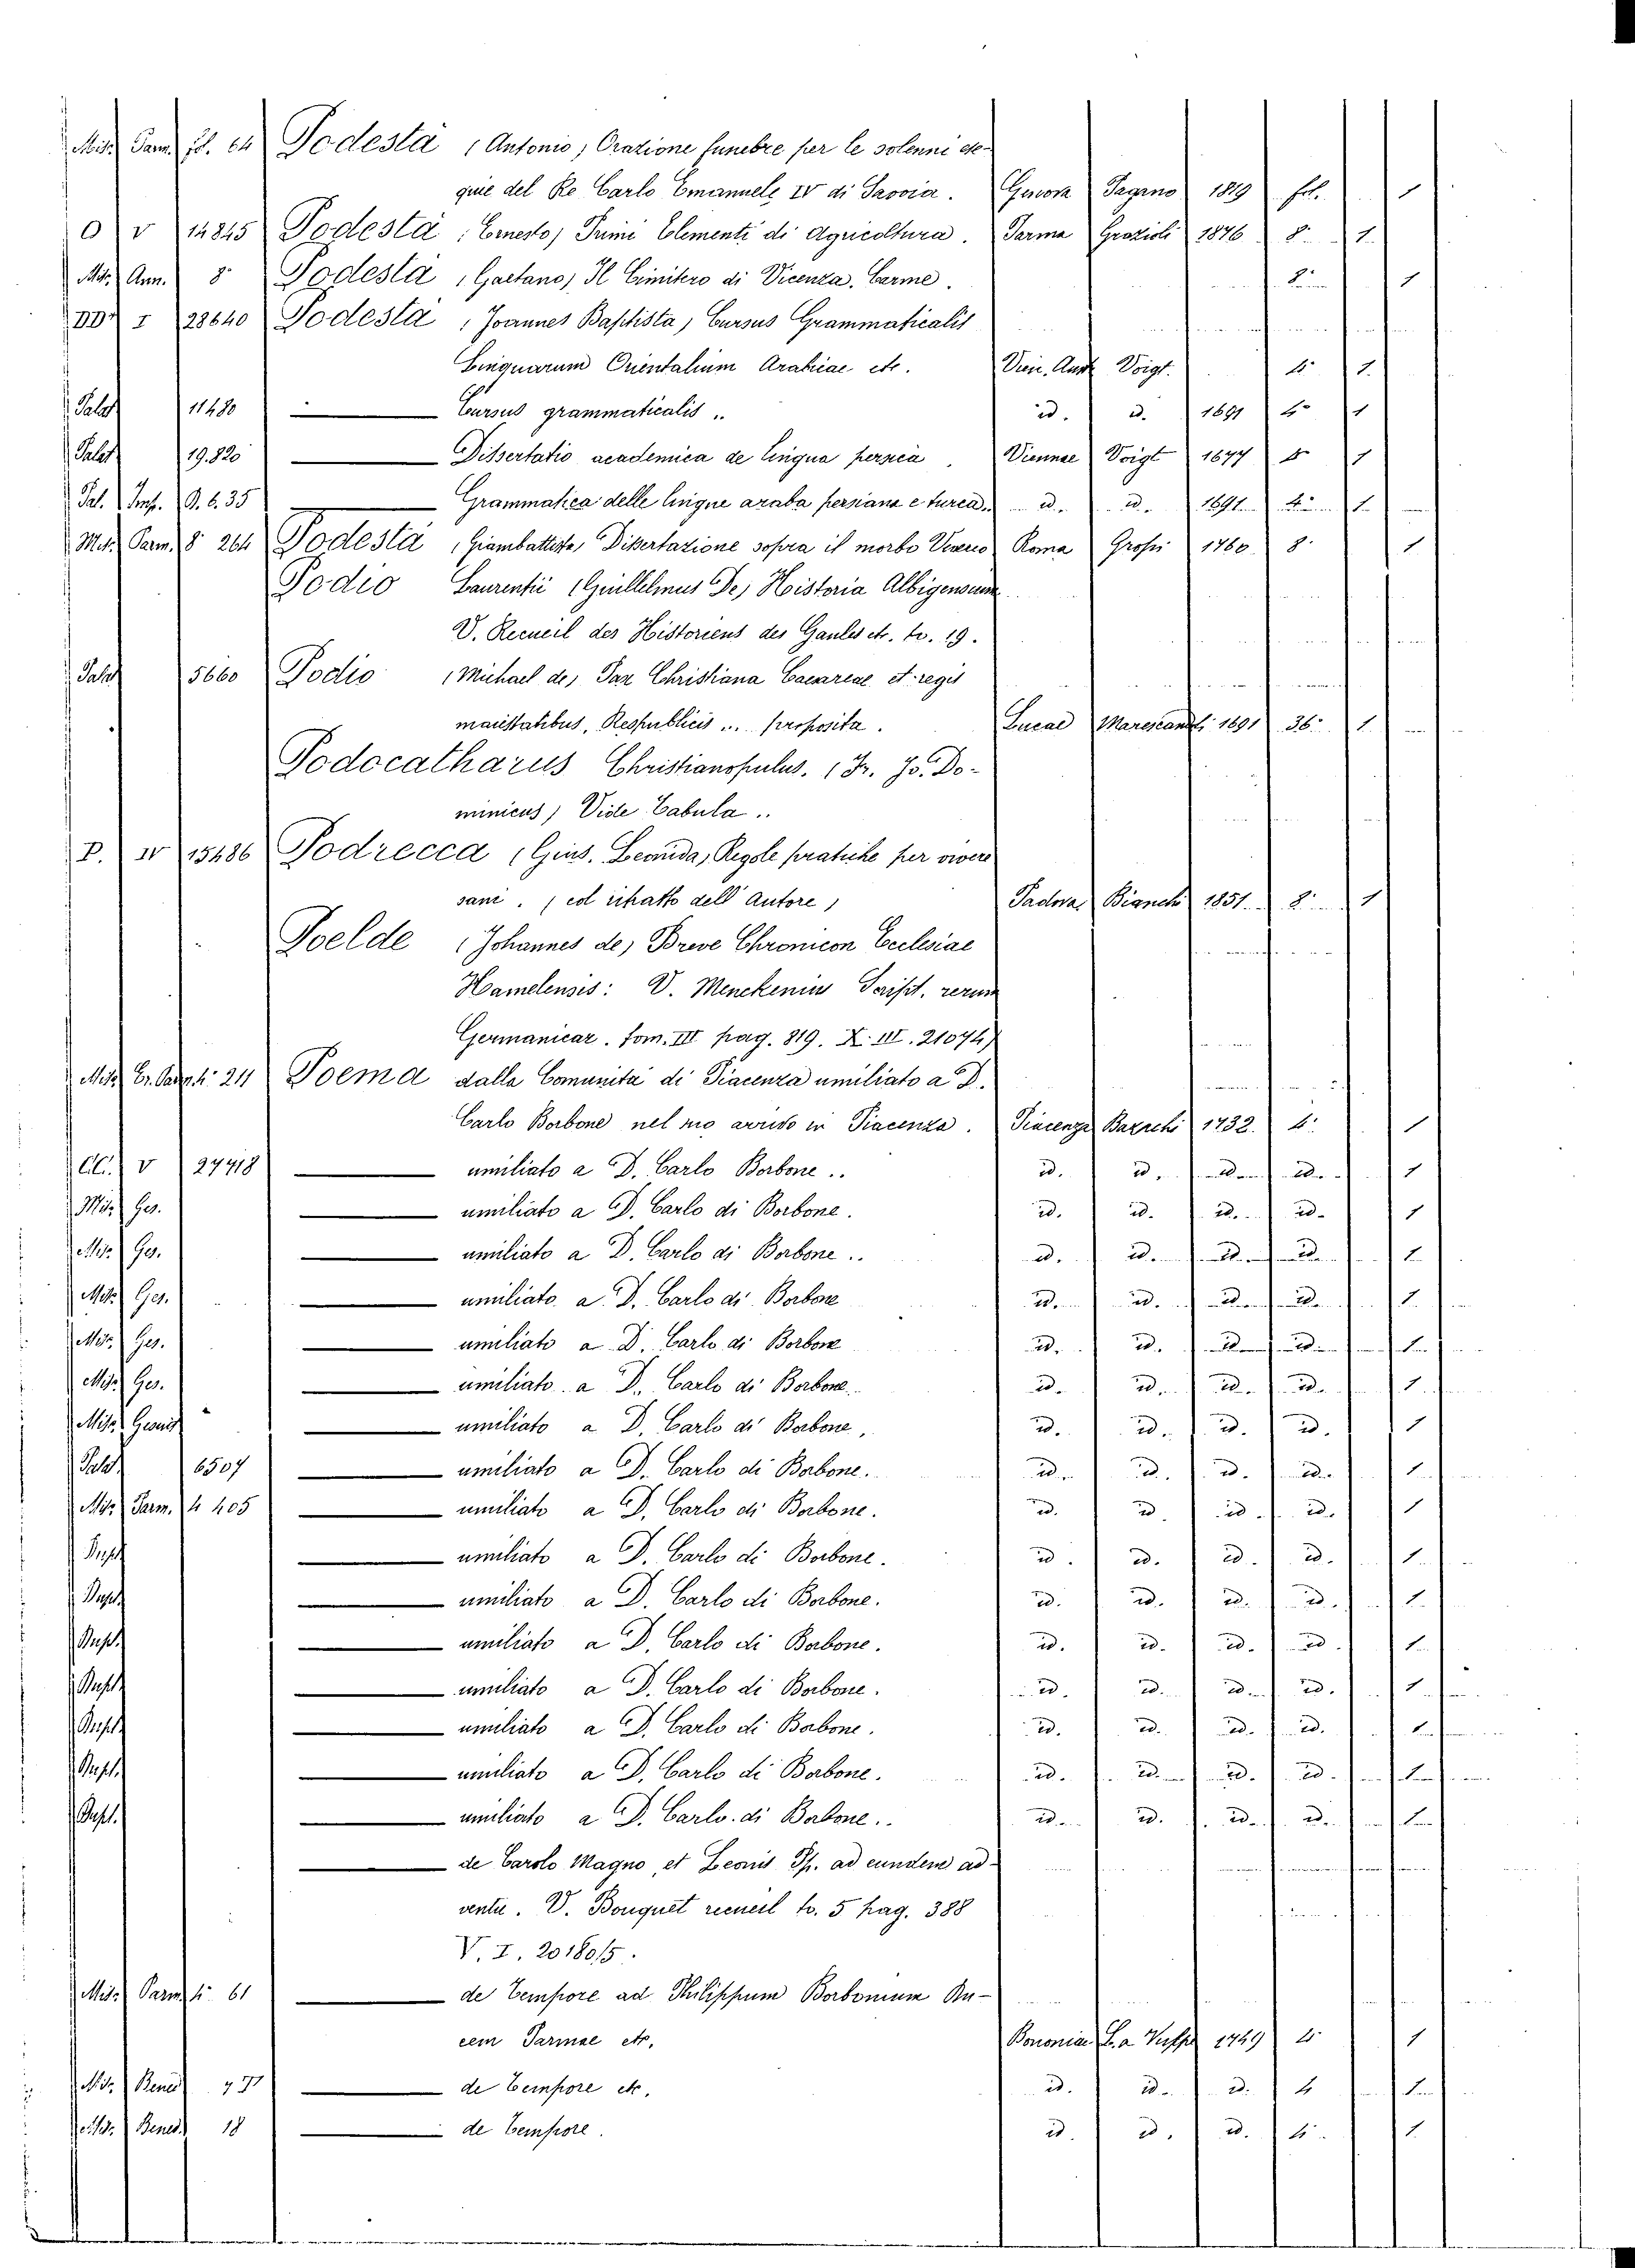 Misc. Parm. fol. 64 Podestà (Antonio) Orazione funebre per le solenni ese-
quie del Re Carlo Emanuele IV di Savoia. Genova Pagano 1819 fol. 1
O V 14845 Podestà (Ernesto) Primi Elementi di Agricoltura. Parma Grazioli 1876 8° 1
Misc. Ann. 8° Podestà (Gaetano) Il Cimitero di Vicenza. Carme. 8° 1
DD I 28640 Podestà (Joannes Baptista) Cursus Grammaticalis
Linguarum Orientalium Arabicae etc. Vien. Aust. Voigt. 4° 1
Palat. 11480 — Cursus grammaticalis .. id. id. 1691 4° 1
Palat. 19.820 — Dissertatio academica de lingua persica. Viennae Voigt 1677 4° 1
Pal. Imp. B. 6. 35 — Grammatica delle lingue araba persiana e turca. id. id. 1691 4° 1
Misc. Parm. 8° 264 Podestà (Giambattista) Dissertazione sopra il morbo Venereo Roma Grossi 1760 8° 1
Podio Laurentii (Guillelmus De) Historia Albigensium
V. Recueil des Historiens des Gaules etc. to. 19.
Palat. 5660 Podio (Michael de) Pax Christiana Caesareae et regis
maiestatibus, Respublicis ... proposita. Lucae Marescandoli 1691 36° 1
Podocatharus Christianopulus. (Fr. Jo. Do-
minicus) Vide Tabula ..
P. IV 15486 Podrecca (Gius. Leonida) Regole pratiche per vivere
sani. (col ritratto dell' Autore) Padova Bianchi 1851 8° 1
Poelde (Johannes de) Breve Chronicon Ecclesiae
Hamelensis: V. Menckenius Script. rerum
Germanicar. tom. III pag. 819. X. III. 21074)
Misc. Er. Parm. 4° 211 Poema dalla Comunità di Piacenza umiliato a D.
Carlo Borbone nel suo arrivo in Piacenza. Piacenza Bazachi 1732 4° 1
V 27718 — umiliato a D. Carlo Borbone .. id. id. id. id. 1
Misc. Ges. — umiliato a D. Carlo di Borbone. id. id. id. id. 1
Misc. Ges. — umiliato a D. Carlo di Borbone .. id. id. id. id. 1
Misc. Ges. — umiliato a D. Carlo di Borbone id. id. id. id. 1
Misc. Ges. — umiliato a D. Carlo di Borbone id. id. id. id. 1
Misc. Ges. — umiliato a D. Carlo di Borbone. id. id. id. id. 1
Misc. Gesuit — umiliato a D. Carlo di Borbone, id. id. id. id. 1
Palat. 6507 — umiliato a D. Carlo di Borbone. id. id. id. id. 1
Misc. Parm. 4° 405 — umiliato a D. Carlo di Borbone. id. id. id. id. 1
Dupl. — umiliato a D. Carlo di Borbone. id. id. id. id. 1
Dupl. — umiliato a D. Carlo di Borbone. id. id. id. id. 1
Dupl. — umiliato a D. Carlo di Borbone. id. id. id. id. 1
Dupl. — umiliato a D. Carlo di Borbone. id. id. id. id. 1
Dupl. — umiliato a D. Carlo di Borbone. id. id. id. id. 1
Dupl. — umiliato a D. Carlo di Borbone. id. id. id. id. 1
Dupl. — umiliato a D. Carlo di Borbone .. id. id. id. id. 1
— de Carolo Magno, et Leonis Pp. ad eundem ad-
ventu. V. Bouquet recueil to. 5 pag. 388
V. I. 20180/5.
Misc. Parm. 4° 61 — de Tempore ad Philippum Borbonium Du-
cem Parmae etc. Bononiae L. a Vulpe 1749 4° 1
Misc. Bened. 77 — de Tempore etc. id. id. id. 4 1
Misc. Bened. 18 — de Tempore. id. id. id. 4° 1